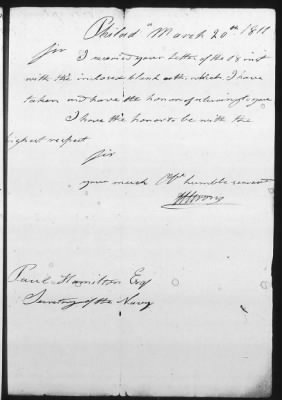 Philad a March 20th 1811
Sir
I received your Letter of the 18 inst
with the inclosed blank oath, which I have
taken and have the honor of returning to you
I have the honor to be with the
highest respect
Sir
your much Obt humble servant
Paul Hamilton Esqr
Secretary of the Navy